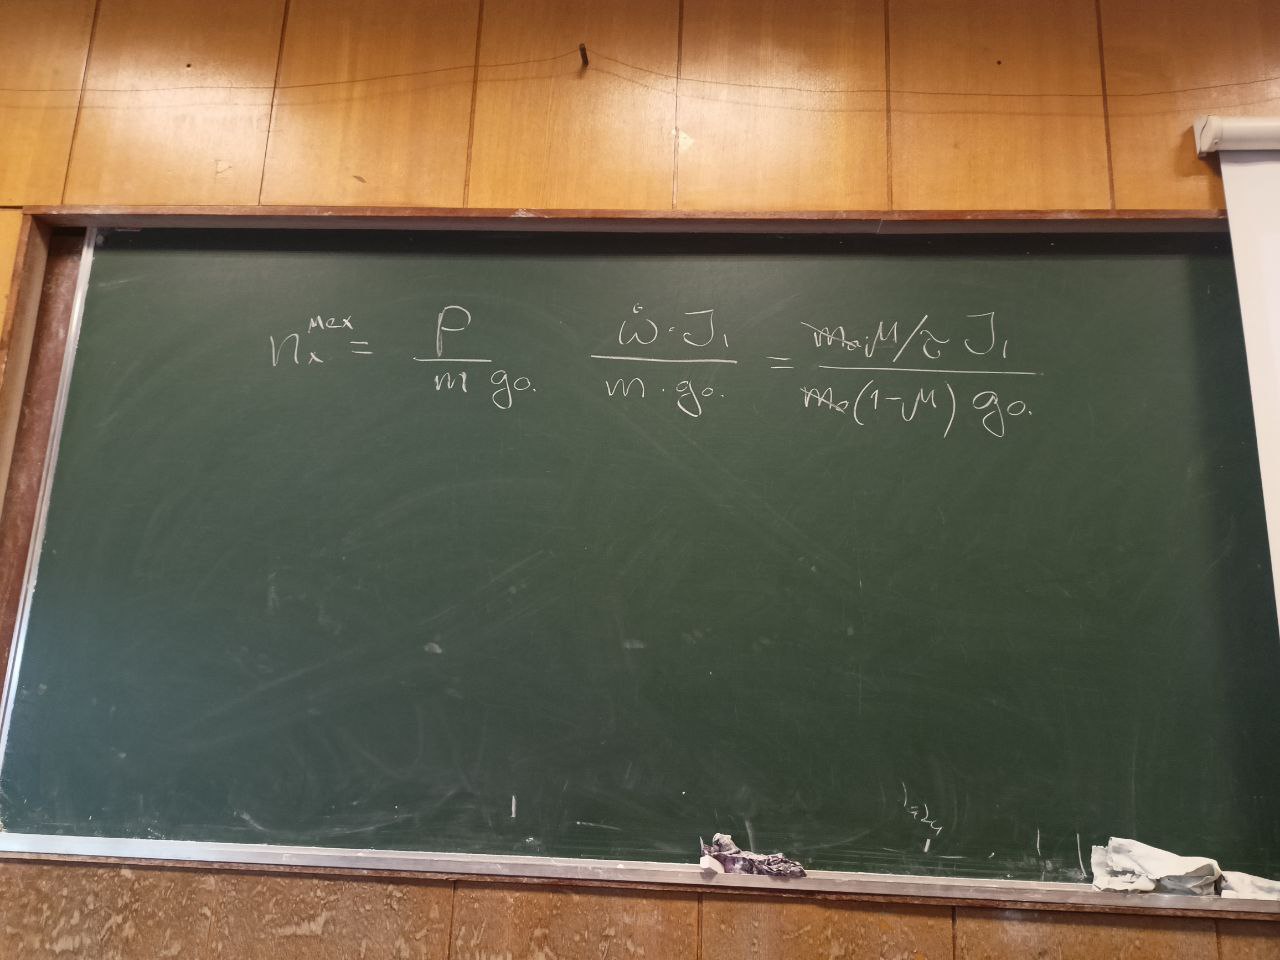 nₓᵐᵃˣ = P / (m g₀.) ω̇ · J₁ / (m · g₀.) = m₀ μ/τ J₁ / (m₀(1-μ) g₀.)